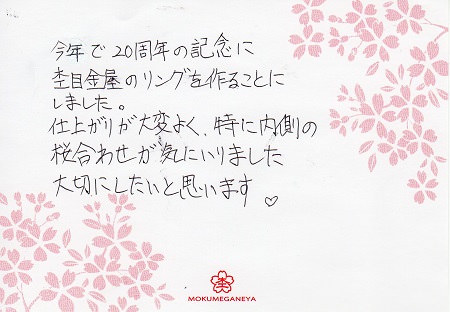 今年で20周年の記念に
杢目金屋のリングを作ることに
しました。
仕上がりが大変よく、特に内側の
桜合わせが気にいりました
大切にしたいと思います♡
杢
MOKUMEGANEYA